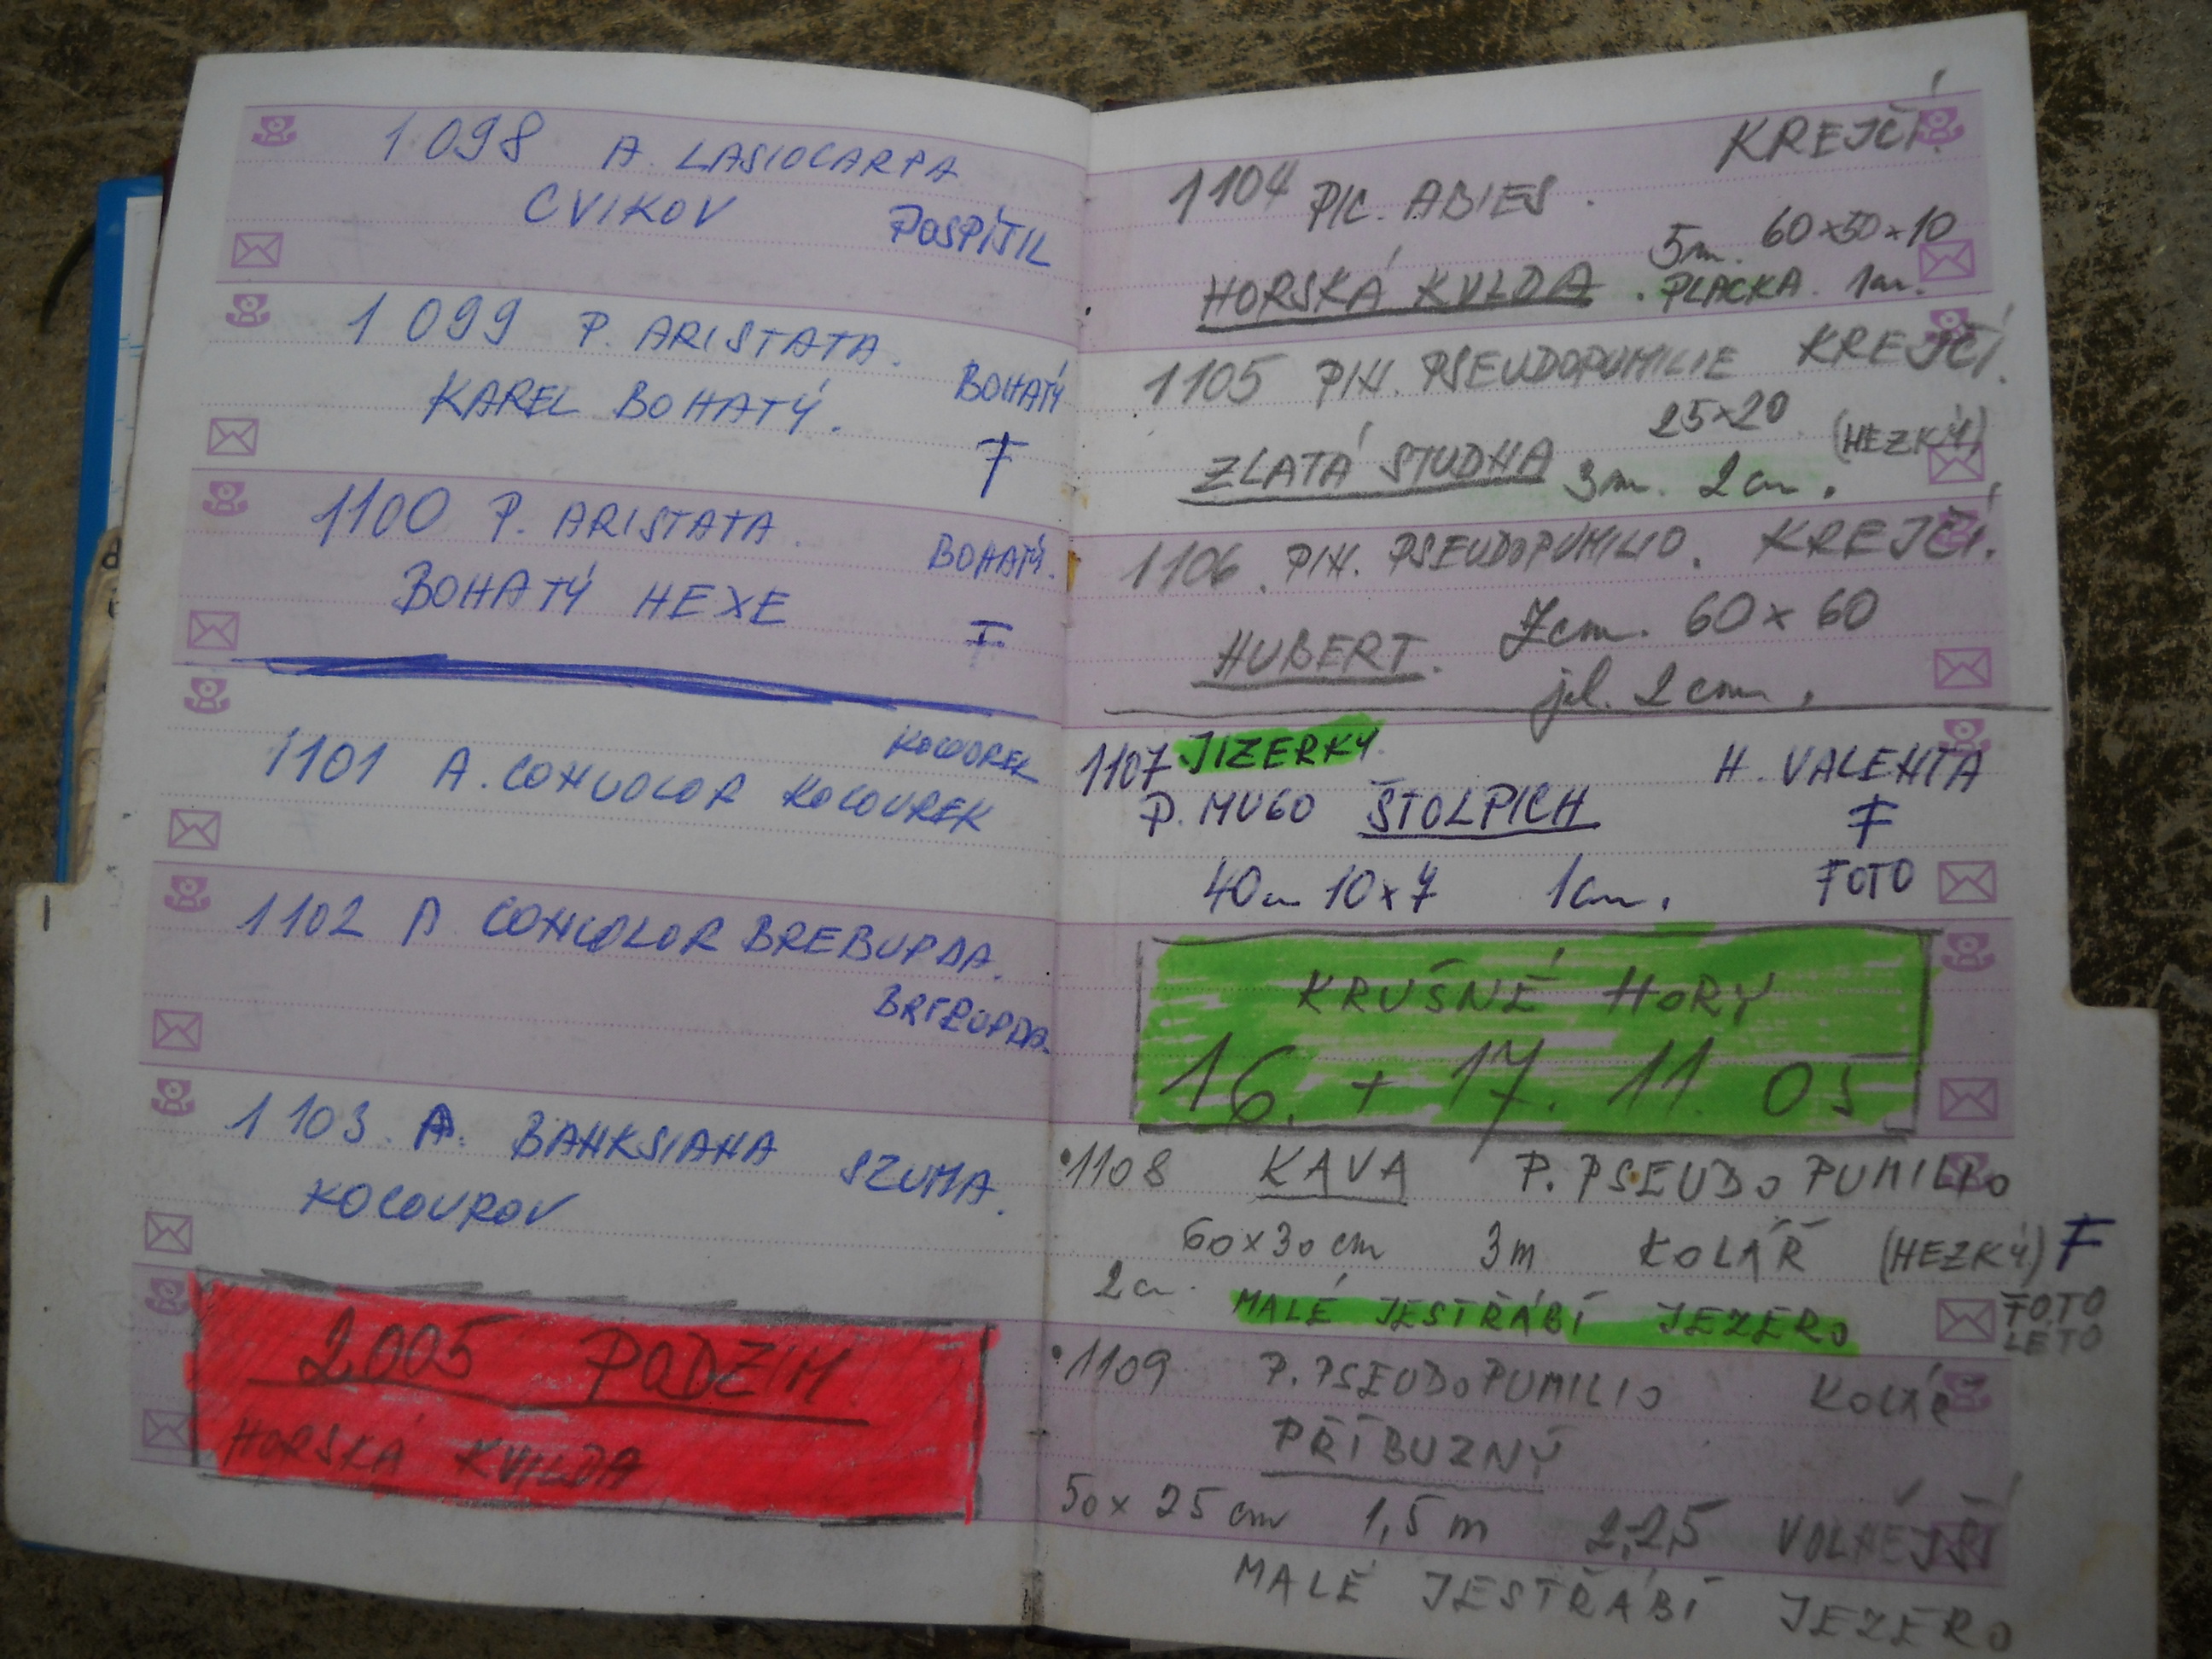 1098 A. LASIOCARPA
CVIKOV POSPÍŠIL
1099 P. ARISTATA.
KAREL BOHATÝ. BOHATÝ
F
1100 P. ARISTATA.
BOHATÝ HEXE BOHATÝ.
F
KOCOUREK
1101 A. CONCOLOR KOCOUREK
1102 A CONCOLOR BREBURDA.
BREBURDA.
1103 A. BANKSIANA SZUMA.
KOCOUROV
2005 PODZIM
HORSKÁ KVILDA
KREJČÍ.
1104 PIC. ABIES.
5m. 60x50x10
HORSKÁ KVILDA. PLACKA. 1cm.
1105 PIN. PSEUDOPUMILIE KREJČÍ.
25x20 (HEZKÝ)
ZLATÁ STUDNA 3m. 2cm.
1106. PIN. PSEUDOPUMILIO. KREJČÍ.
HUBERT. 7cm. 60x60
jl. 2cm.
1107 JIZERKY. H. VALENTA
P. MUGO ŠTOLPICH F
40cm 10x7 1cm. FOTO
KRUŠNÉ HORY
16. + 17. 11. 05
1108 KAVA P. PSEUDOPUMILIO
60x30 cm 3m KOLÁŘ (HEZKÝ) F
2cm. MALÉ JESTŘÁBÍ JEZERO FOTO
LÉTO
1109 P. PSEUDOPUMILIO KOLÁŘ
PŘÍBUZNÝ
50x25 cm 1,5 m 2,25 VOLNĚJŠÍ
MALÉ JESTŘÁBÍ JEZERO